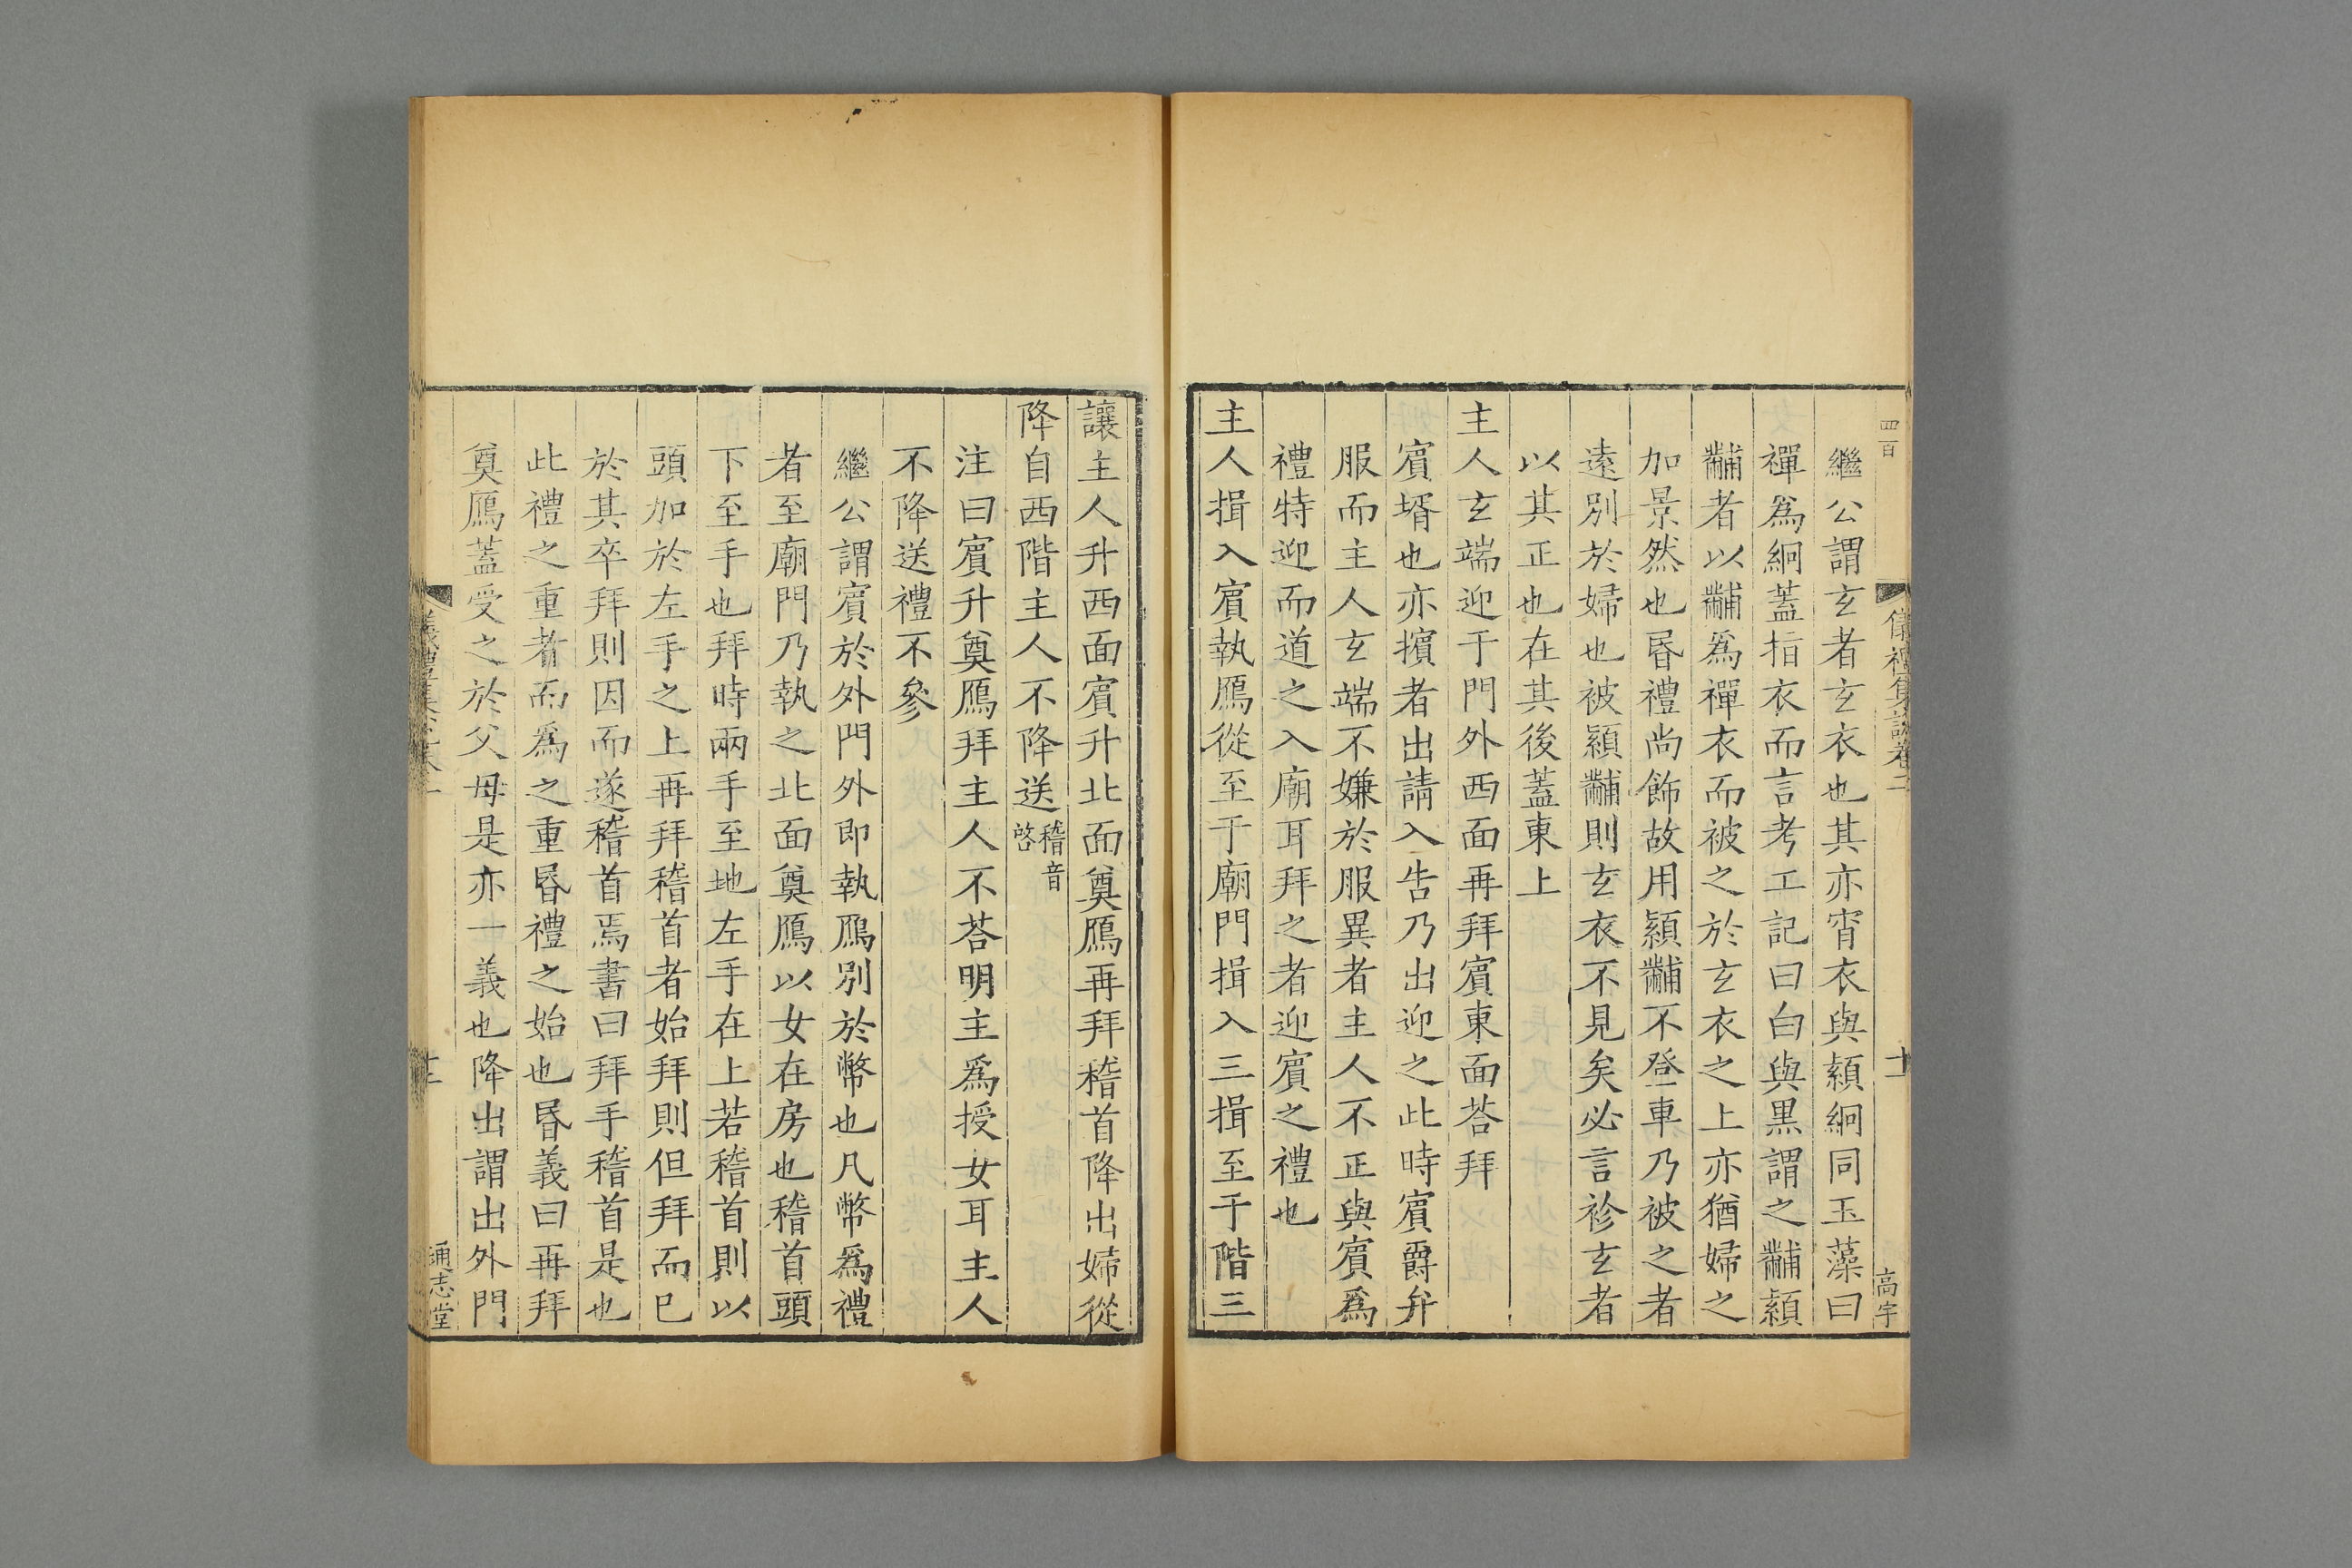 四百
儀禮集說卷二
十一
高宇
繼公謂玄者玄衣也其亦宵衣與顈絅同玉藻曰
襌爲絅蓋指衣而言考工記曰白與黒謂之黼顈
黼者以黼爲襌衣而被之於玄衣之上亦猶婦之
加景然也昬禮尚飾故用顈黼不登車乃被之者
遠別於婦也被顈黼則玄衣不見矣必言袗玄者
以其正也在其後蓋東上
主人玄端迎于門外西面再拜賓東面荅拜
賓壻也亦擯者出請入告乃出迎之此時賓爵弁
服而主人玄端不嫌於服異者主人不正與賓爲
禮特迎而道之入廟耳拜之者迎賓之禮也
主人揖入賓執鴈從至于廟門揖入三揖至于階三
讓主人升西面賓升北面奠鴈再拜稽首降出婦從
降自西階主人不降送稽音啓
注曰賓升奠鴈拜主人不荅明主爲授女耳主人
不降送禮不參
繼公謂賓於外門外即執鴈別於幣也凡幣爲禮
者至廟門乃執之北面奠鴈以女在房也稽首頭
下至手也拜時兩手至地左手在上若稽首則以
頭加於左手之上再拜稽首者始拜則但拜而已
於其卒拜則因而遂稽首焉書曰拜手稽首是也
此禮之重者而爲之重昬禮之始也昬義曰再拜
奠鴈蓋受之於父母是亦一義也降出謂出外門
通志堂